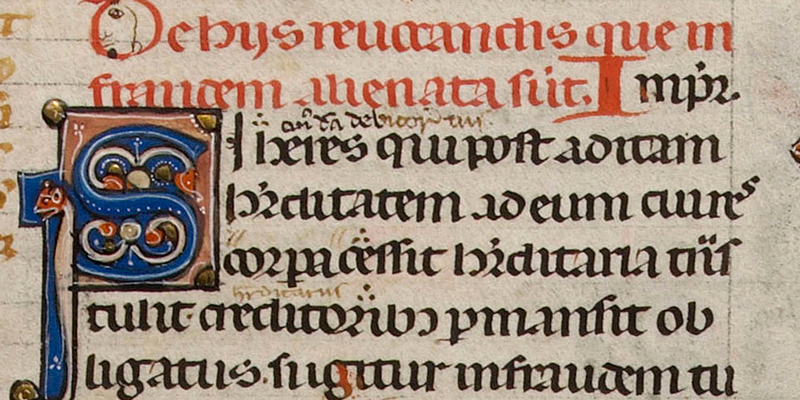 De hijs reuocandis que in
fraudem alienata sūt. Imp̄r.
SI heres qui post aditam
hr̄ditatem ad eum cui res
corpa cessit hr̄ditaria tn̄s
hr̄ditarius
tulit creditoribꝫ ꝑmansit ob
ligatus. si igitur in fraudem tu